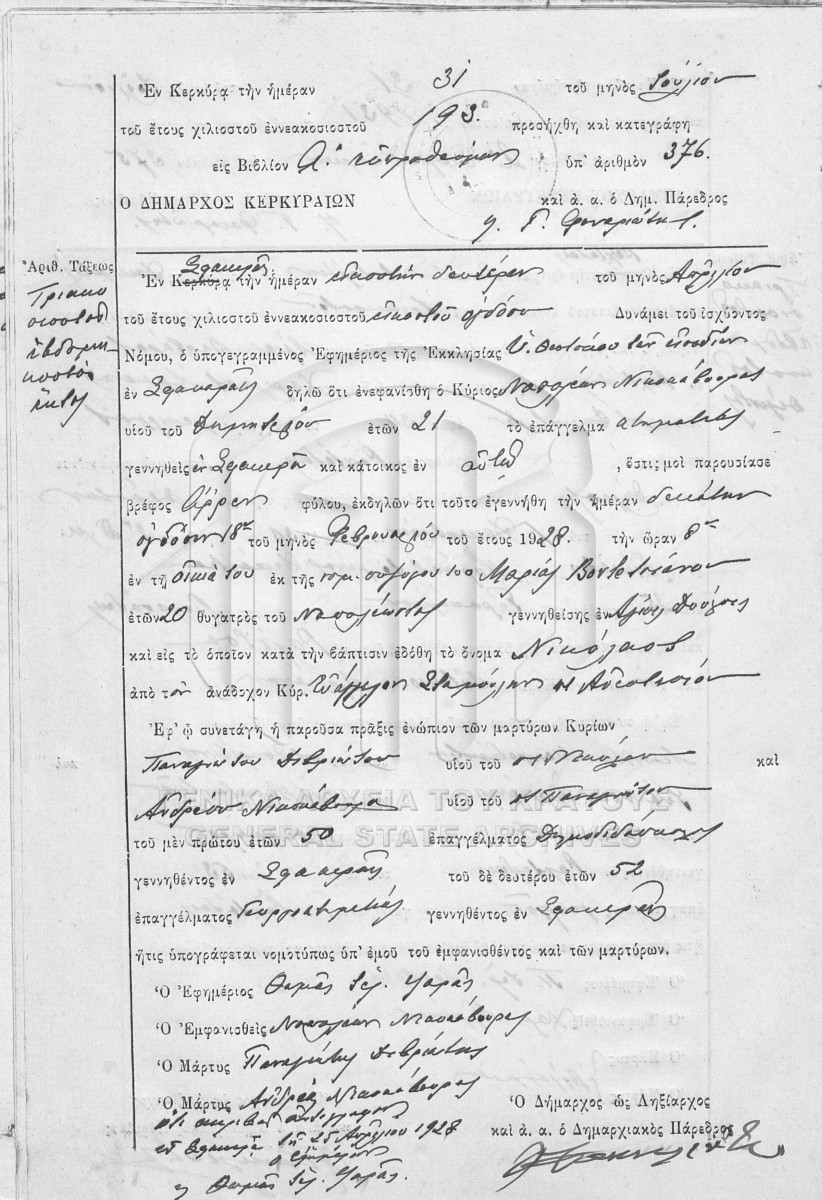 Ἐν Κερκύρᾳ τὴν ἡμέραν 31 τοῦ μηνὸς Ἰούλιον
τοῦ ἔτους χιλιοστοῦ ἐννεακοσιοστοῦ 193. προσήχθη καὶ κατεγράφη
εἰς Βιβλίον Α. ὑπ' ἀριθμὸν 376.
Ο ΔΗΜΑΡΧΟΣ ΚΕΡΚΥΡΑΙΩΝ καὶ ἀ. ἀ. ὁ Δημ. Πάρεδρος
Γ.
Ἀριθ. Τάξεως
Τριακο
σιοστοῦ
ἑβδομη
κοστὸς
ἕκτος
Ἐν Κερκύρᾳ Σφακερᾶς τὴν ἡμέραν εἰκοστὴν δευτέραν τοῦ μηνὸς Ἀπρίλιον
τοῦ ἔτους χιλιοστοῦ ἐννεακοσιοστοῦ εἰκοστοῦ ὀγδόου Δυνάμει τοῦ ἰσχύοντος
Νόμου, ὁ ὑπογεγραμμένος Ἐφημέριος τῆς Ἐκκλησίας Ὑ. Θεοτόκου τῶν
ἐν Σφακερᾶς δηλῶ ὅτι ἐνεφανίσθη ὁ Κύριος Ναπολέων
υἱοῦ τοῦ Δημητρίου ἐτῶν 21 τὸ ἐπάγγελμα κτηματίας
γεννηθεὶς ἐν Σφακερᾶ καὶ κάτοικος ἐν αὐτῷ, ὅστις μοὶ παρουσίασε
βρέφος ἄρρεν φύλου, ἐκδηλῶν ὅτι τοῦτο ἐγεννήθη τὴν ἡμέραν δεκάτην
ὀγδόην 18ην τοῦ μηνὸς Φεβρουαρίου τοῦ ἔτους 1928. τὴν ὥραν 8ην
ἐν τῇ οἰκίᾳ του ἐκ τῆς νομ. συζύγου του Μαρίας
ἐτῶν 20 θυγατρὸς τοῦ Ναπολέοντος γεννηθείσης ἐν Ἁγίους Δούλους
καὶ εἰς τὸ ὁποῖον κατὰ τὴν βάπτισιν ἐδόθη τὸ ὄνομα Νικόλαος
ἀπὸ τὸν ἀνάδοχον Κύρ. Εὐάγγελον Σταμούλην
Ἐφ' ᾧ συνετάγη ἡ παροῦσα πρᾶξις ἐνώπιον τῶν μαρτύρων Κυρίων
Παναγιώτου Δεβριώτου υἱοῦ τοῦ καὶ
Ἀνδρέου υἱοῦ τοῦ Παναγιώτου
ΓΕΝΙΚΑ ΑΡΧΕΙΑ ΤΟΥ ΚΡΑΤΟΥΣ
GENERAL STATE ARCHIVES
τοῦ μὲν πρώτου ἐτῶν 50 ἐπαγγέλματος Δημοδιδάσκαλος
γεννηθέντος ἐν Σφακερᾶς τοῦ δὲ δευτέρου ἐτῶν 52
ἐπαγγέλματος Γεωργοκτηματίας γεννηθέντος ἐν Σφακερᾶς
ἥτις ὑπογράφεται νομοτύπως ὑπ' ἐμοῦ τοῦ ἐμφανισθέντος καὶ τῶν μαρτύρων.
Ὁ Ἐφημέριος Θωμᾶς Ἱερ. Ψαρᾶς
Ὁ Ἐμφανισθεὶς Ναπολέων
Ὁ Μάρτυς Παναγιώτης Δεβριώτης
Ὁ Μάρτυς Ἀνδρέας
Ὅτι ἀκριβὲς ἀντίγραφον
ἐν Σφακερᾶ τῇ 25 Ἀπριλίου 1928
ὁ ἐφημέριος
Θωμᾶς Ἱερ. Ψαρᾶς
Ὁ Δήμαρχος ὡς Ληξίαρχος
καὶ ἀ. ἀ. ὁ Δημαρχιακὸς Πάρεδρος